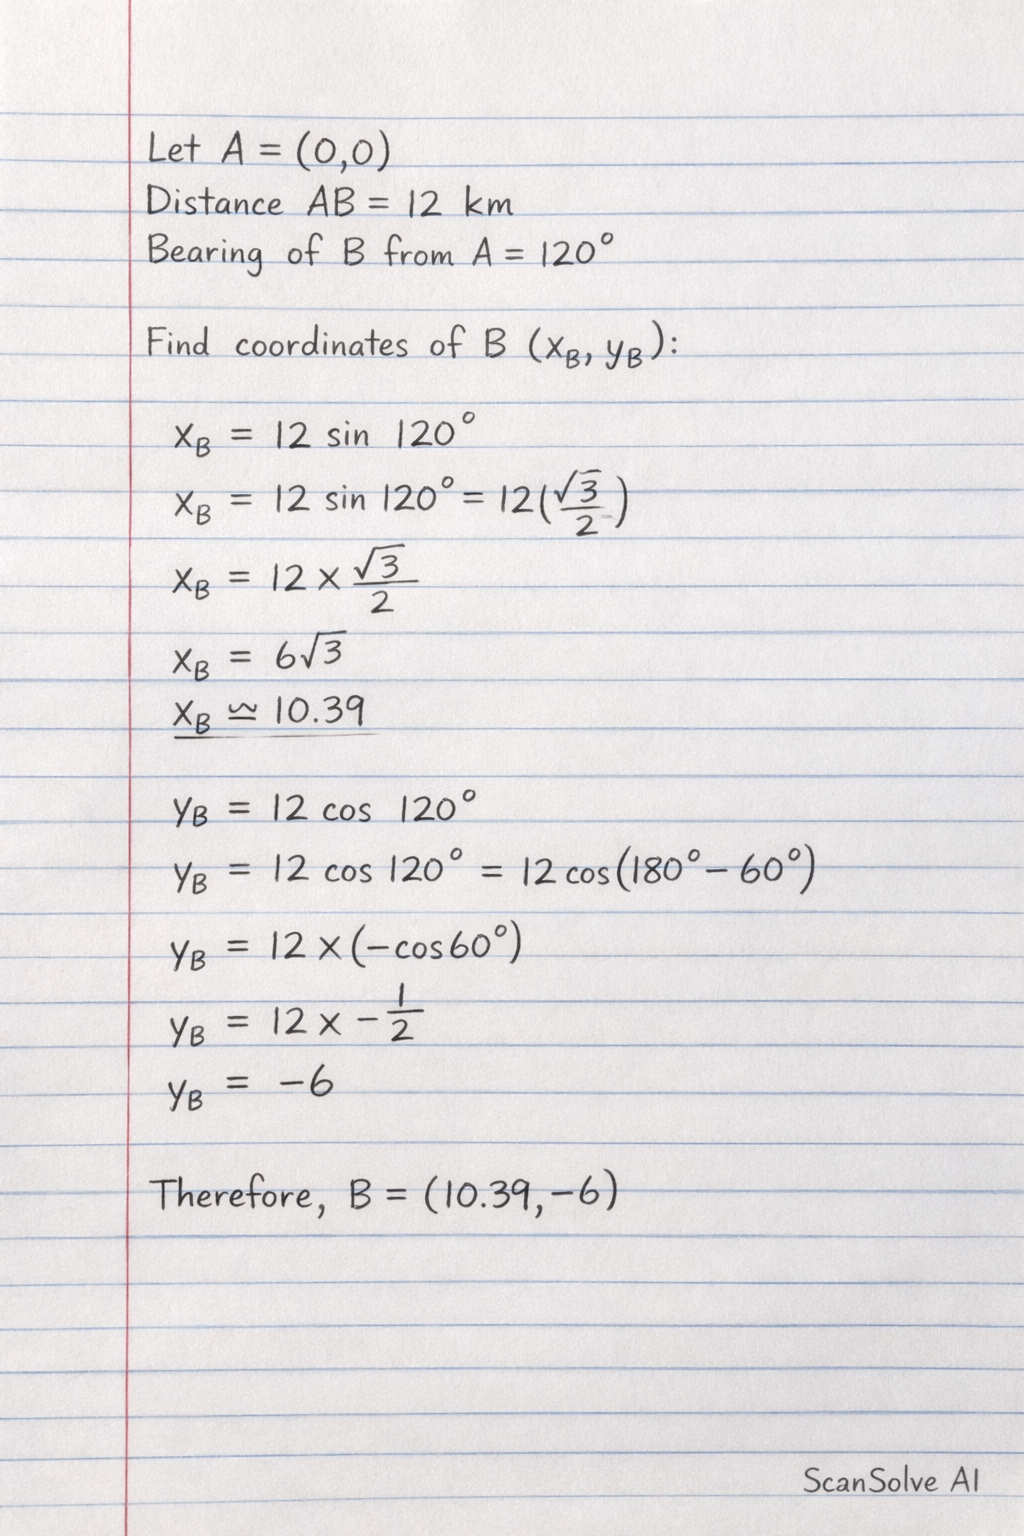 Let A = (0,0)
Distance AB = 12 km
Bearing of B from A = 120°
Find coordinates of B (x_B, y_B):
x_B = 12 sin 120°
x_B = 12 sin 120° = 12(√3/2)
x_B = 12 × √3/2
x_B = 6√3
x_B ≌ 10.39
y_B = 12 cos 120°
y_B = 12 cos 120° = 12 cos(180° − 60°)
y_B = 12 × (−cos60°)
y_B = 12 × −1/2
y_B = −6
Therefore, B = (10.39, −6)
ScanSolve AI